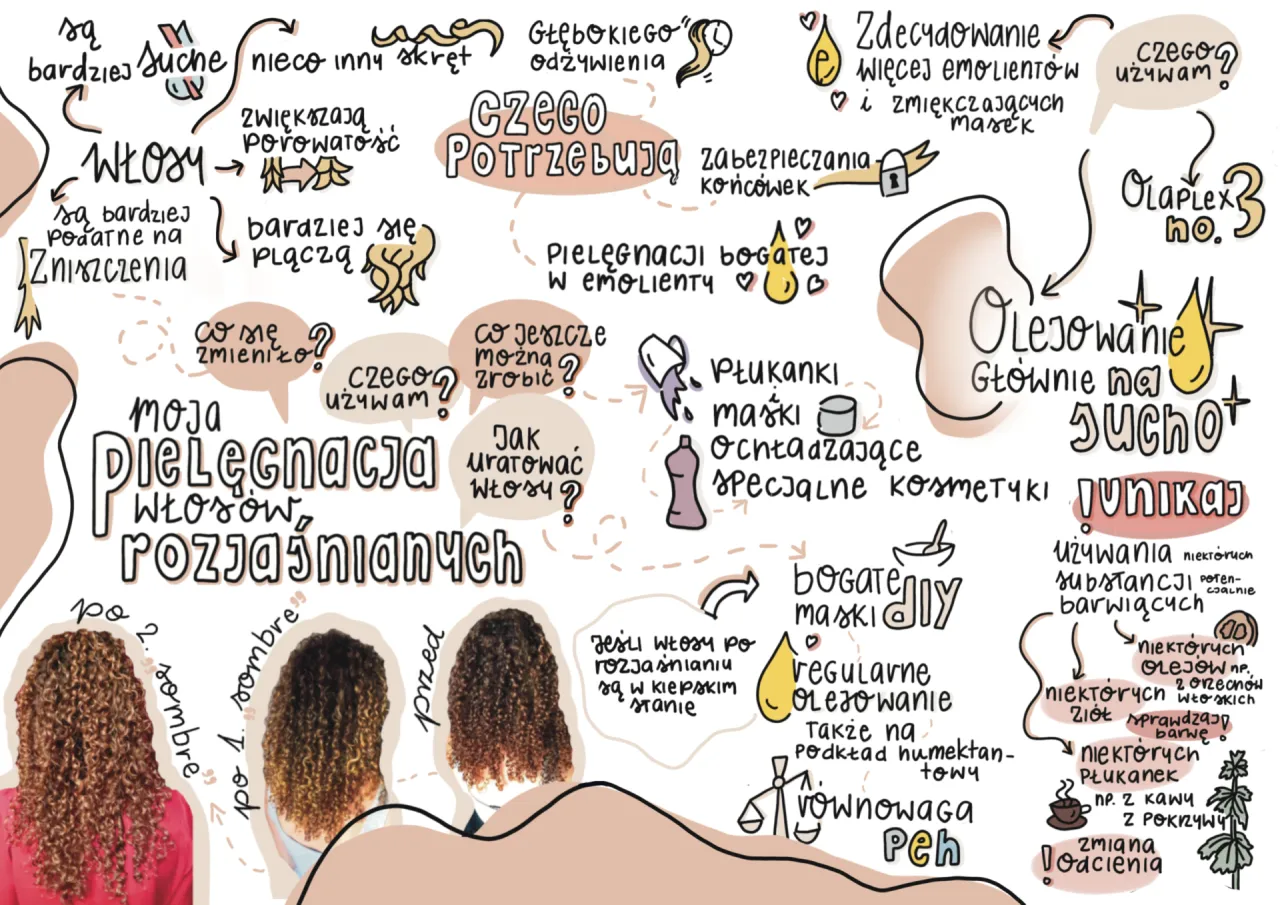 są
bardziej suche
nieco inny skręt
Włosy
zwiększają
porowatość
są bardziej
podatne na
zniszczenia
bardziej się
plączą
Czego
potrzebują
Głębokiego
odżywienia
zabezpieczania
końcówek
pielęgnacji bogatej
w emolienty
czego
używam?
e
Zdecydowanie
więcej emolientów
i zmiękczających
masek
Olaplex
no. 3
Olejowanie
głównie na
sucho
co się
zmieniło?
czego
używam?
co jeszcze
można
zrobić?
Jak
uratować
włosy?
moja
pielęgnacja
włosów
rozjaśnianych
płukanki
i
maski
ochładzające
specjalne kosmetyki
!unikaj
używania niektórych
substancji poten-
cjalnie
barwiących
niektórych
olejów np.
z orzechów
włoskich
niektórych
ziół
sprawdzaj
barwę!
niektórych
płukanek
np. z kawy
z pokrzywy
!zmiana
odcienia
Jeśli włosy po
rozjaśnianiu
są w kiepskim
stanie
bogate
maski diy
regularne
olejowanie
także na
podkład humektan-
towy
równowaga
peh
po 2. „sombre”
po 1. „sombre”
przed